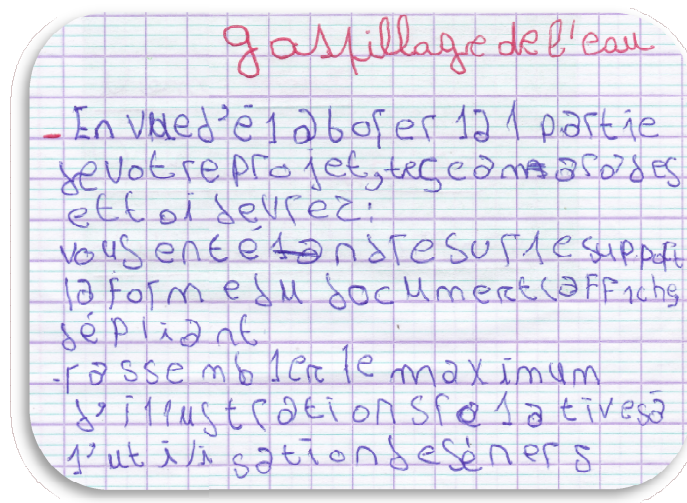 gaspillage de l'eau
- En vue d'élaborer la 1 partie
de votre projet, tes camarades
et toi devrez:
vous entendre sur le support
la forme du document (affiche,
dépliant
- rassembler le maximum
d'illustrations relatives à
l'utilisation des éners